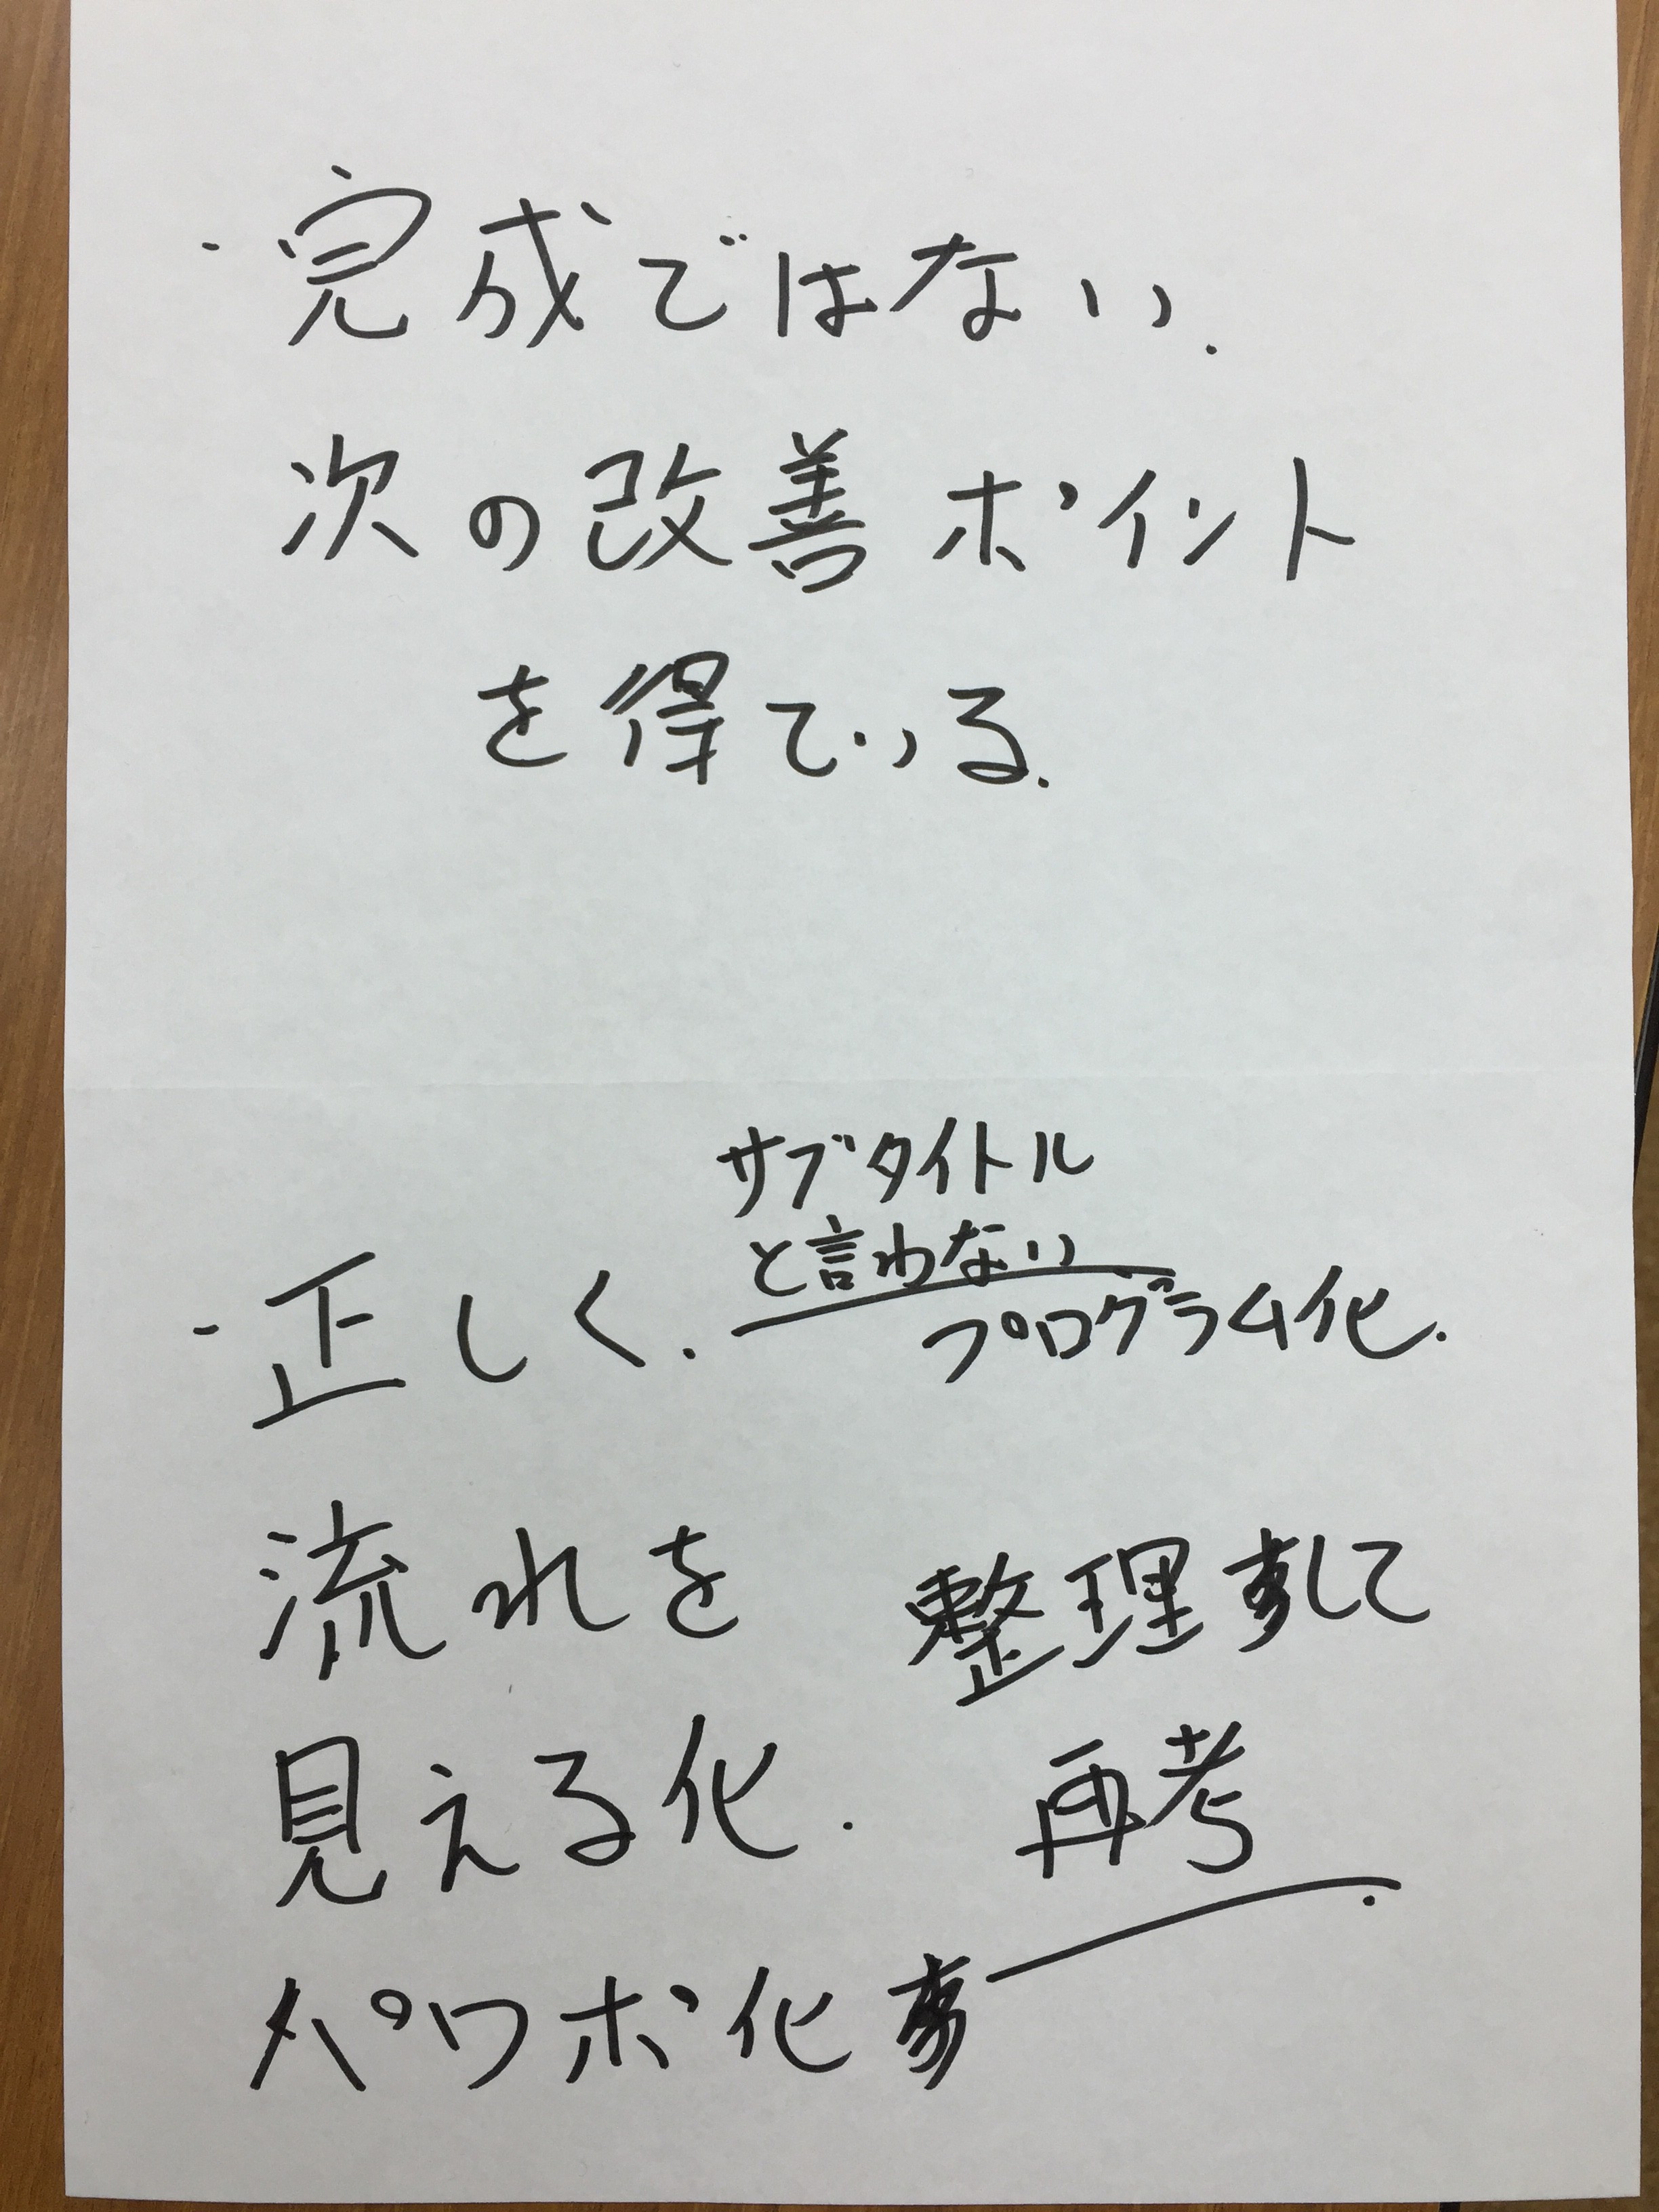 ・完成ではない.
次の改善ポイント
を得ている.
サブタイトル
と言わない
・正しく. プログラム化.
流れを 整理して
見える化. 再考.
パワポ化